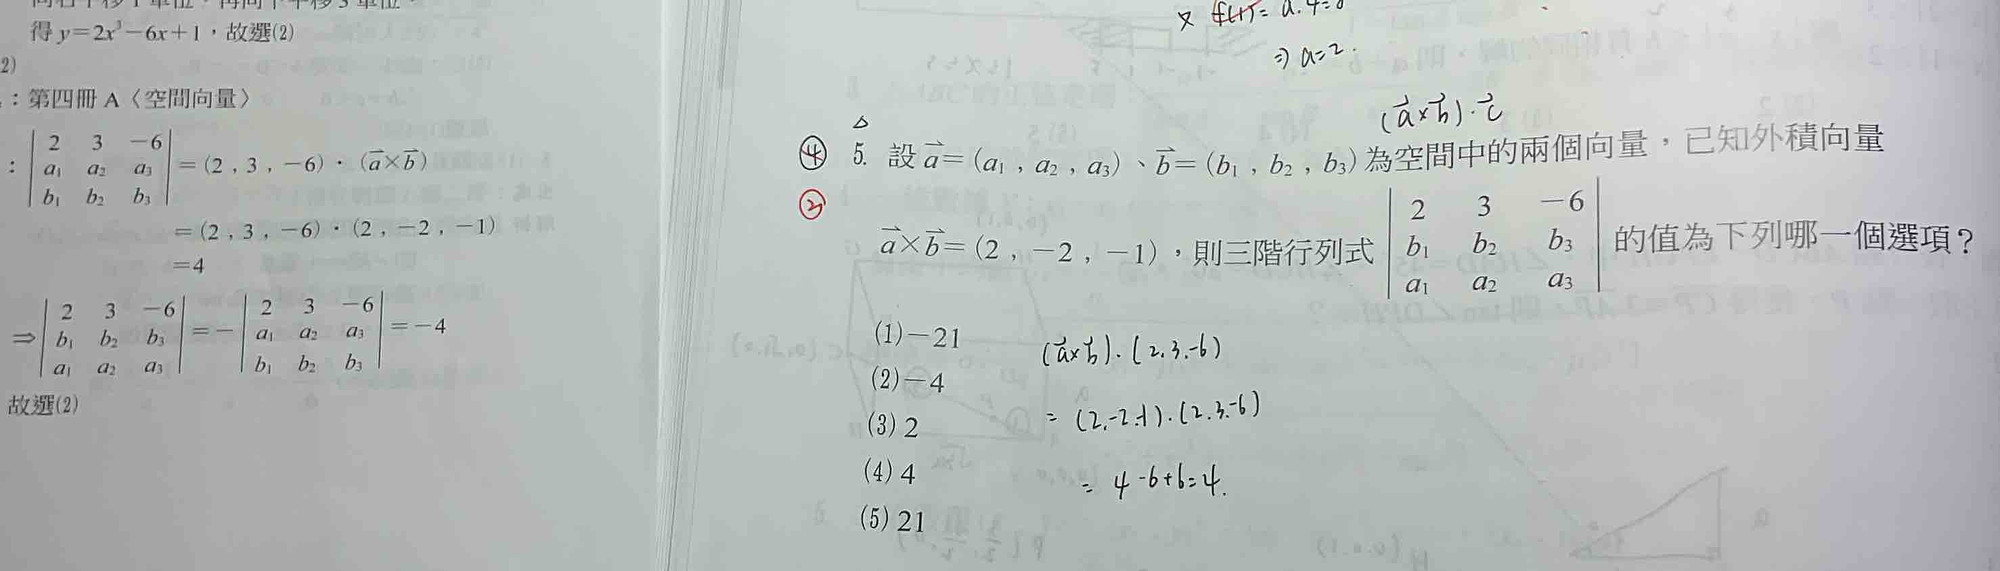 得 y=2x³−6x+1，故選(2)
2)
：第四冊 A〈空間向量〉
：| 2 3 −6 |
| a₁ a₂ a₃ | =(2，3，−6)·(a⃗×b⃗)
| b₁ b₂ b₃ |
=(2，3，−6)·(2，−2，−1)
=4
| 2 3 −6 | | 2 3 −6 |
⇒ | b₁ b₂ b₃ | =− | a₁ a₂ a₃ | =−4
| a₁ a₂ a₃ | | b₁ b₂ b₃ |
故選(2)
又 f(1)= a.4=8
⇒ a=2.
(a⃗×b⃗)·c⃗
△
④ 5. 設 a⃗=(a₁，a₂，a₃)、b⃗=(b₁，b₂，b₃)為空間中的兩個向量，已知外積向量
②
| 2 3 −6 |
a⃗×b⃗=(2，−2，−1)，則三階行列式 | b₁ b₂ b₃ | 的值為下列哪一個選項？
| a₁ a₂ a₃ |
(1)−21
(2)−4
(3) 2
(4) 4
(5) 21
(a⃗×b⃗).(2.3.-6)
= (2.-2.-1).(2.3.-6)
= 4-6+6=4.